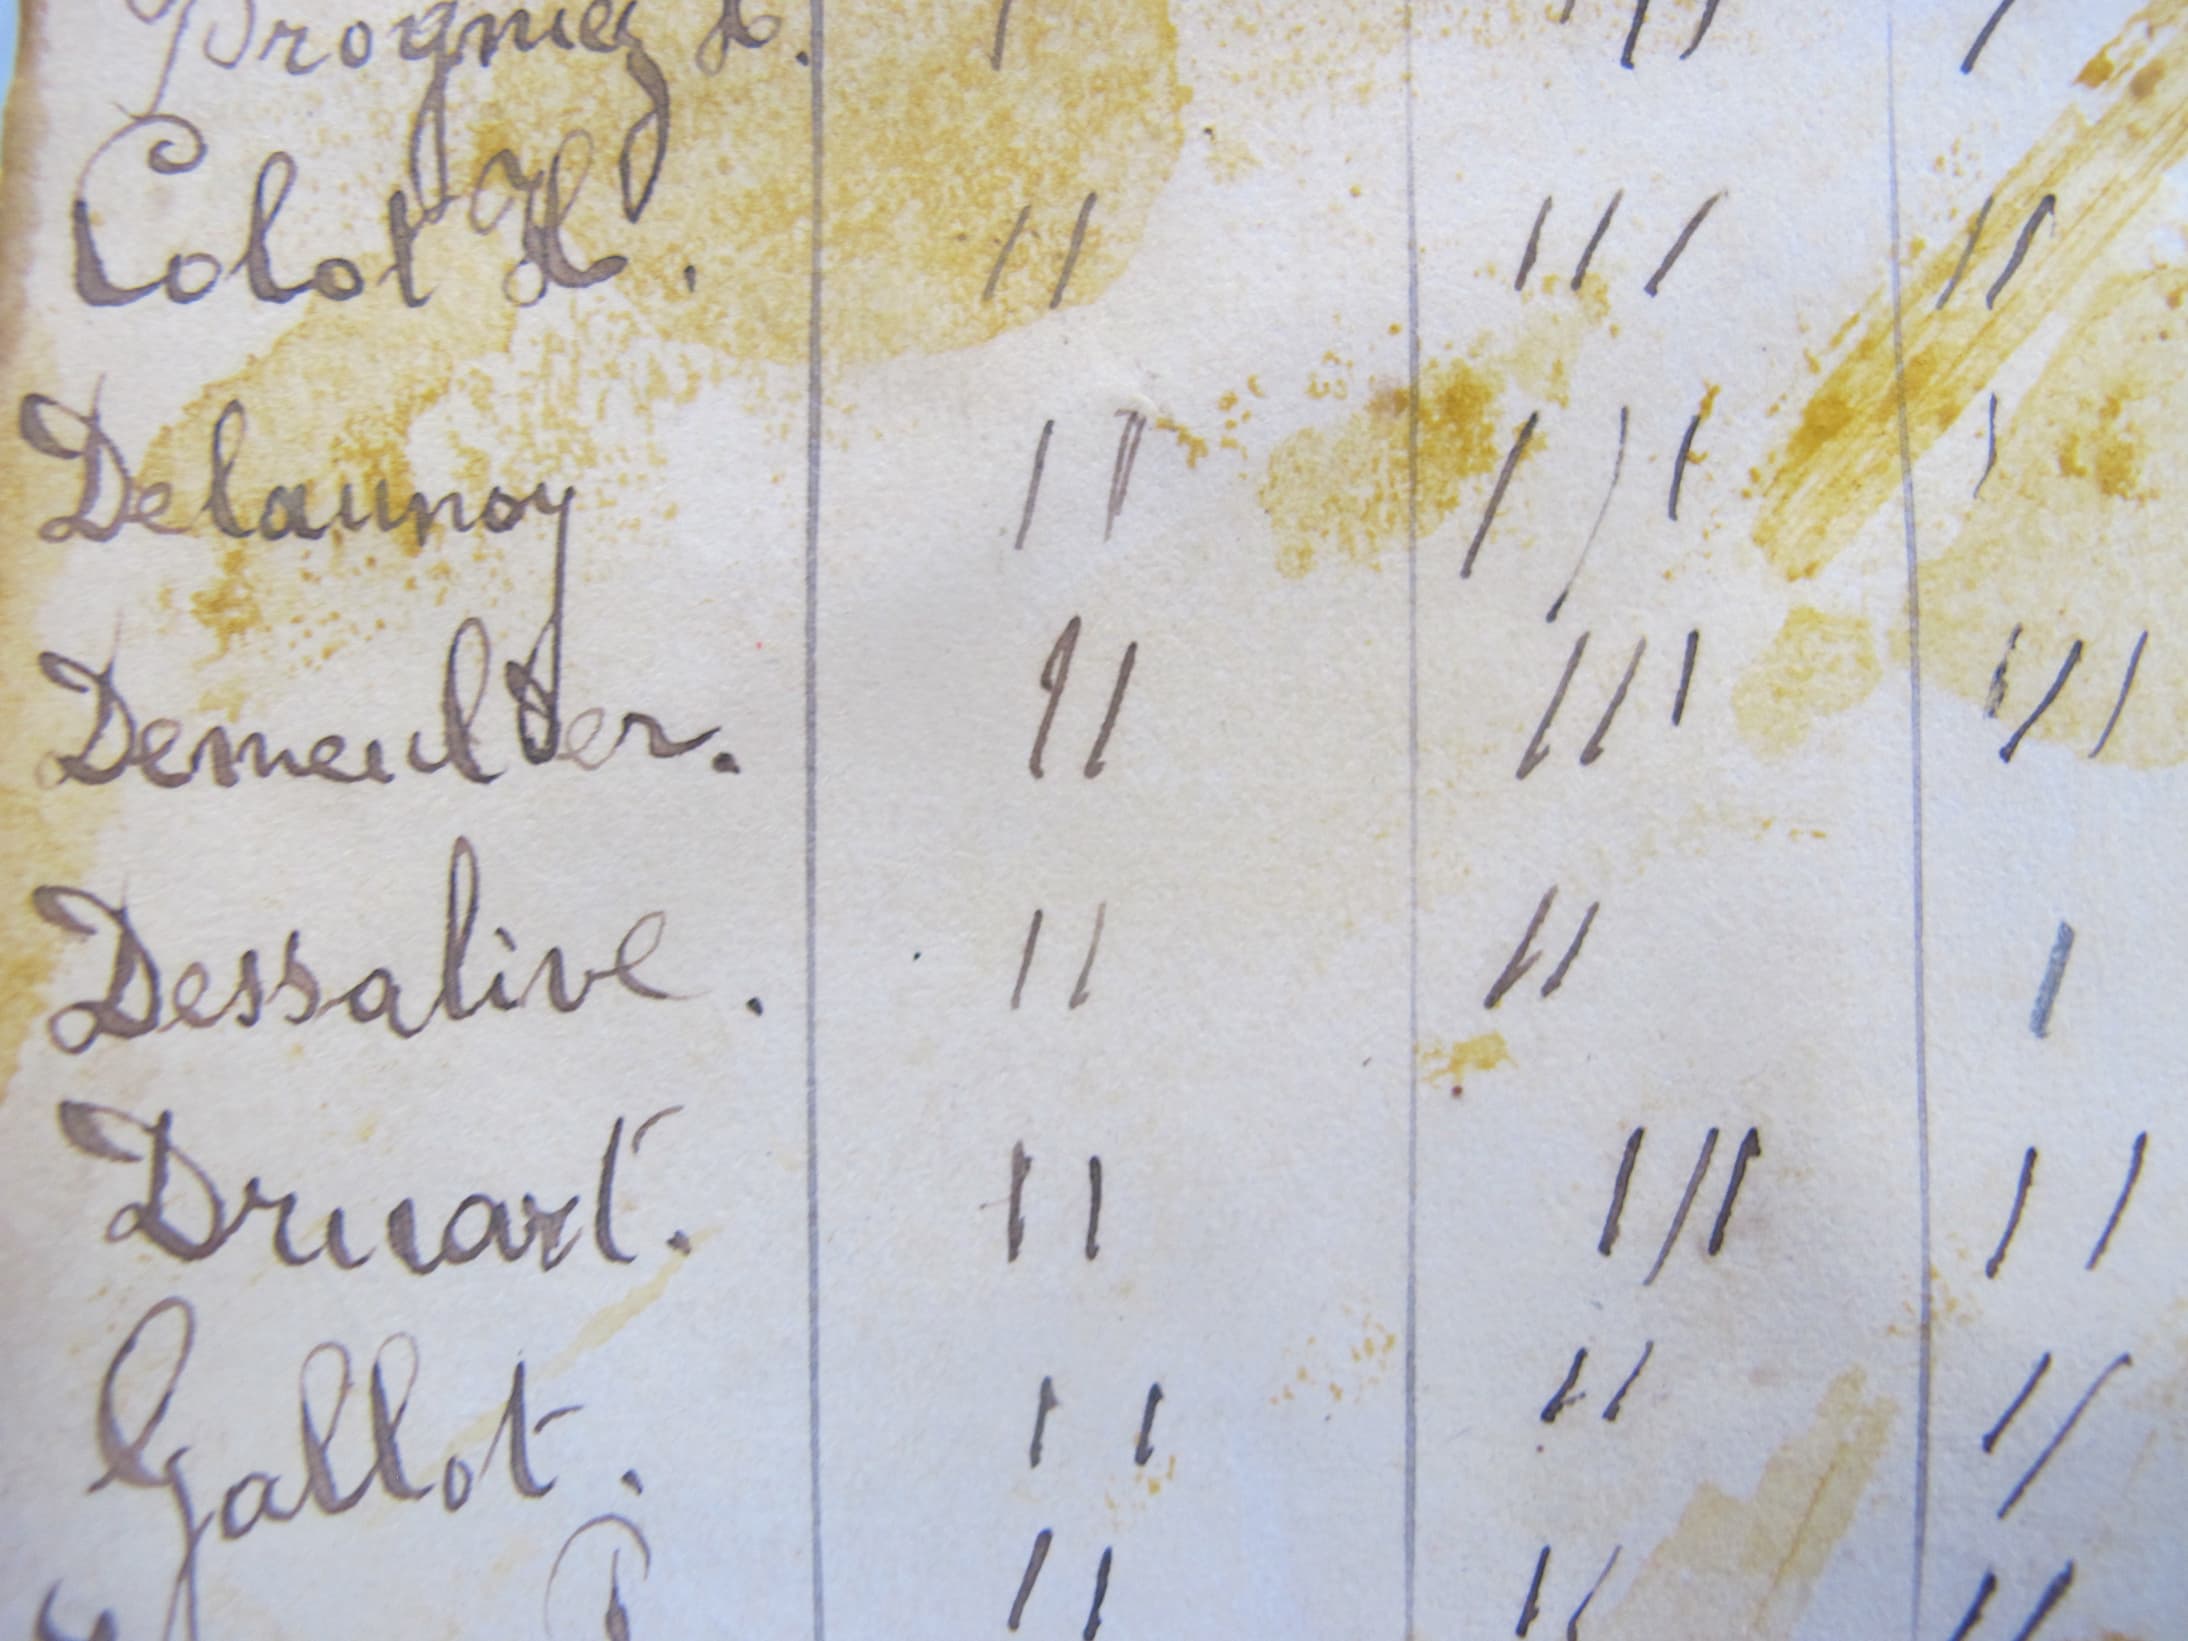 Brogniez H. / /// /
Colot H. // /// //
Delaunoy // /// /
Demeulder. // /// ///
Dessalive. // // /
Druart. // /// //
Gallot. // // //
// // //